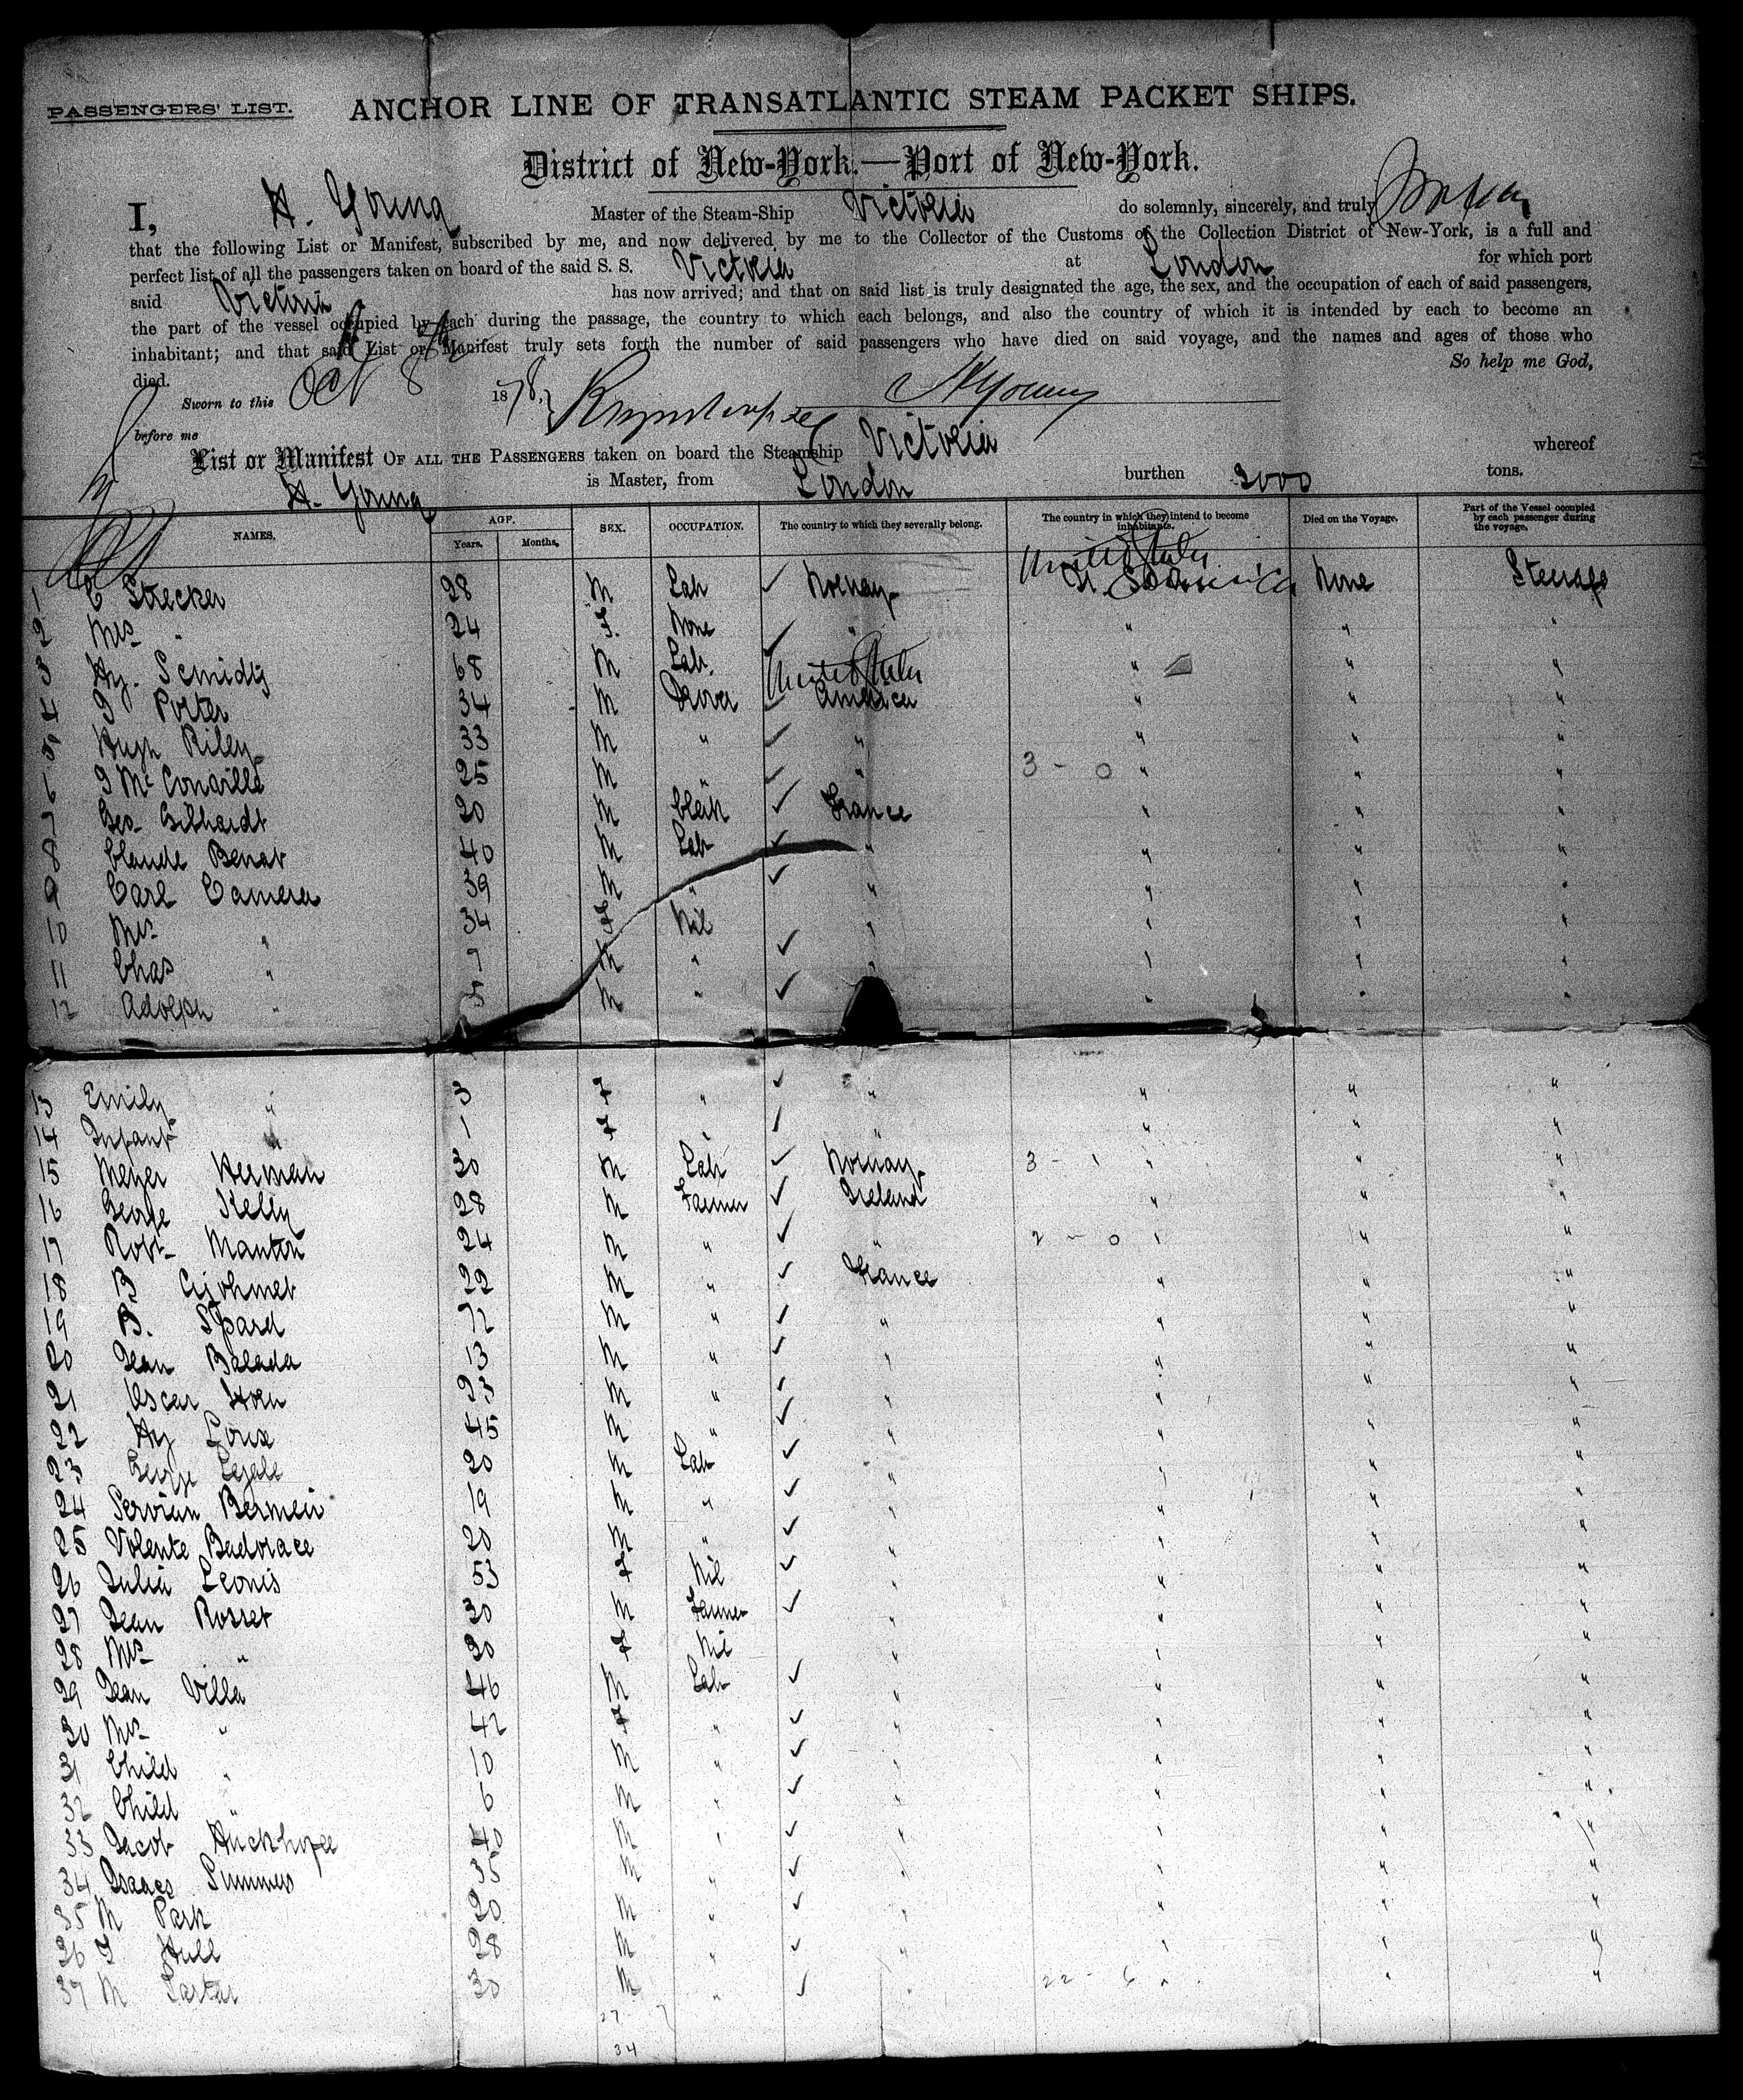 PASSENGERS' LIST. ANCHOR LINE OF TRANSATLANTIC STEAM PACKET SHIPS.
District of New-York.—Port of New-York.
I, A. Young Master of the Steam-Ship Victoria do solemnly, sincerely, and truly
that the following List or Manifest, subscribed by me, and now delivered by me to the Collector of the Customs of the Collection District of New-York, is a full and
perfect list of all the passengers taken on board of the said S. S. Victoria at London for which port
said Victoria has now arrived; and that on said list is truly designated the age, the sex, and the occupation of each of said passengers,
the part of the vessel occupied by each during the passage, the country to which each belongs, and also the country of which it is intended by each to become an
inhabitant; and that said List or Manifest truly sets forth the number of said passengers who have died on said voyage, and the names and ages of those who
died. So help me God,
Sworn to this Oct 8th 1878, A Young
before me
List or Manifest OF ALL THE PASSENGERS taken on board the Steamship Victoria whereof
A. Young is Master, from London burthen 3000 tons.
NAMES. AGE. Years. Months. SEX. OCCUPATION. The country to which they severally belong. The country in which they intend to become inhabitants. Died on the Voyage. Part of the Vessel occupied by each passenger during the voyage.
United States
1 C Strecker 28 M Lab ✓ Norway U. S. America None Steerage
2 Mrs " 24 F. None ✓ " " " "
3 Hy. Schmidtz 68 M Lab. United States " " "
4 J Porter 34 M Drover ✓ America " " "
5 Hugh Riley 33 M " ✓ " " " "
6 J McConville 25 M " ✓ " 3 - 0 " " "
7 Geo Gibhardt 20 M Clerk ✓ France " " "
8 Claude Benat 40 M Lab ✓ " " " "
9 Carl Camera 39 M " ✓ " " " "
10 Mrs " 34 F Nil " " " "
11 Chas " 7 M " ✓ " " " "
12 Adolph " 5 M " ✓ " " "
13 Emily " 3 F " ✓ " " " "
14 Infant " 1 F " ✓ " " " "
15 Meyer Herman 30 M Lab ✓ Norway 3 - 1 " " "
16 George Kelly 28 M Farmer ✓ Ireland " " "
17 Robt Manton 24 M " ✓ " 2 - 0 " " "
18 B Ajohmet 22 M " ✓ France " " "
19 B. Spard 72 M " ✓ " " " "
20 Jean Balada 13 M " ✓ " " " "
21 Oscar Horn 23 M " ✓ " " " "
22 Hy Loux 45 M " ✓ " " " "
23 George Lejall 20 M Lab ✓ " " " "
24 Servien Bermeii 19 M " ✓ " " " "
25 Volente Badorace 20 M " ✓ " " " "
26 Julia Leonis 53 F Nil ✓ " " " "
27 Jean Rosset 30 M Farmer ✓ " " " "
28 Mrs " 30 F Nil " " "
29 Jean Villa 46 M Lab ✓ " " " "
30 Mrs " 42 F " ✓ " " " "
31 Child " 10 M " ✓ " " " "
32 Child " 6 M " ✓ " " " "
33 Jacob 40 M " ✓ " " " "
34 Isaacs Summers 35 M " ✓ " " "
35 M Park 20 M " ✓ " " " "
36 J Hull 28 M " ✓ " " " "
37 M Partar 30 M " ✓ " 22 - 6 " " "
27 7
34